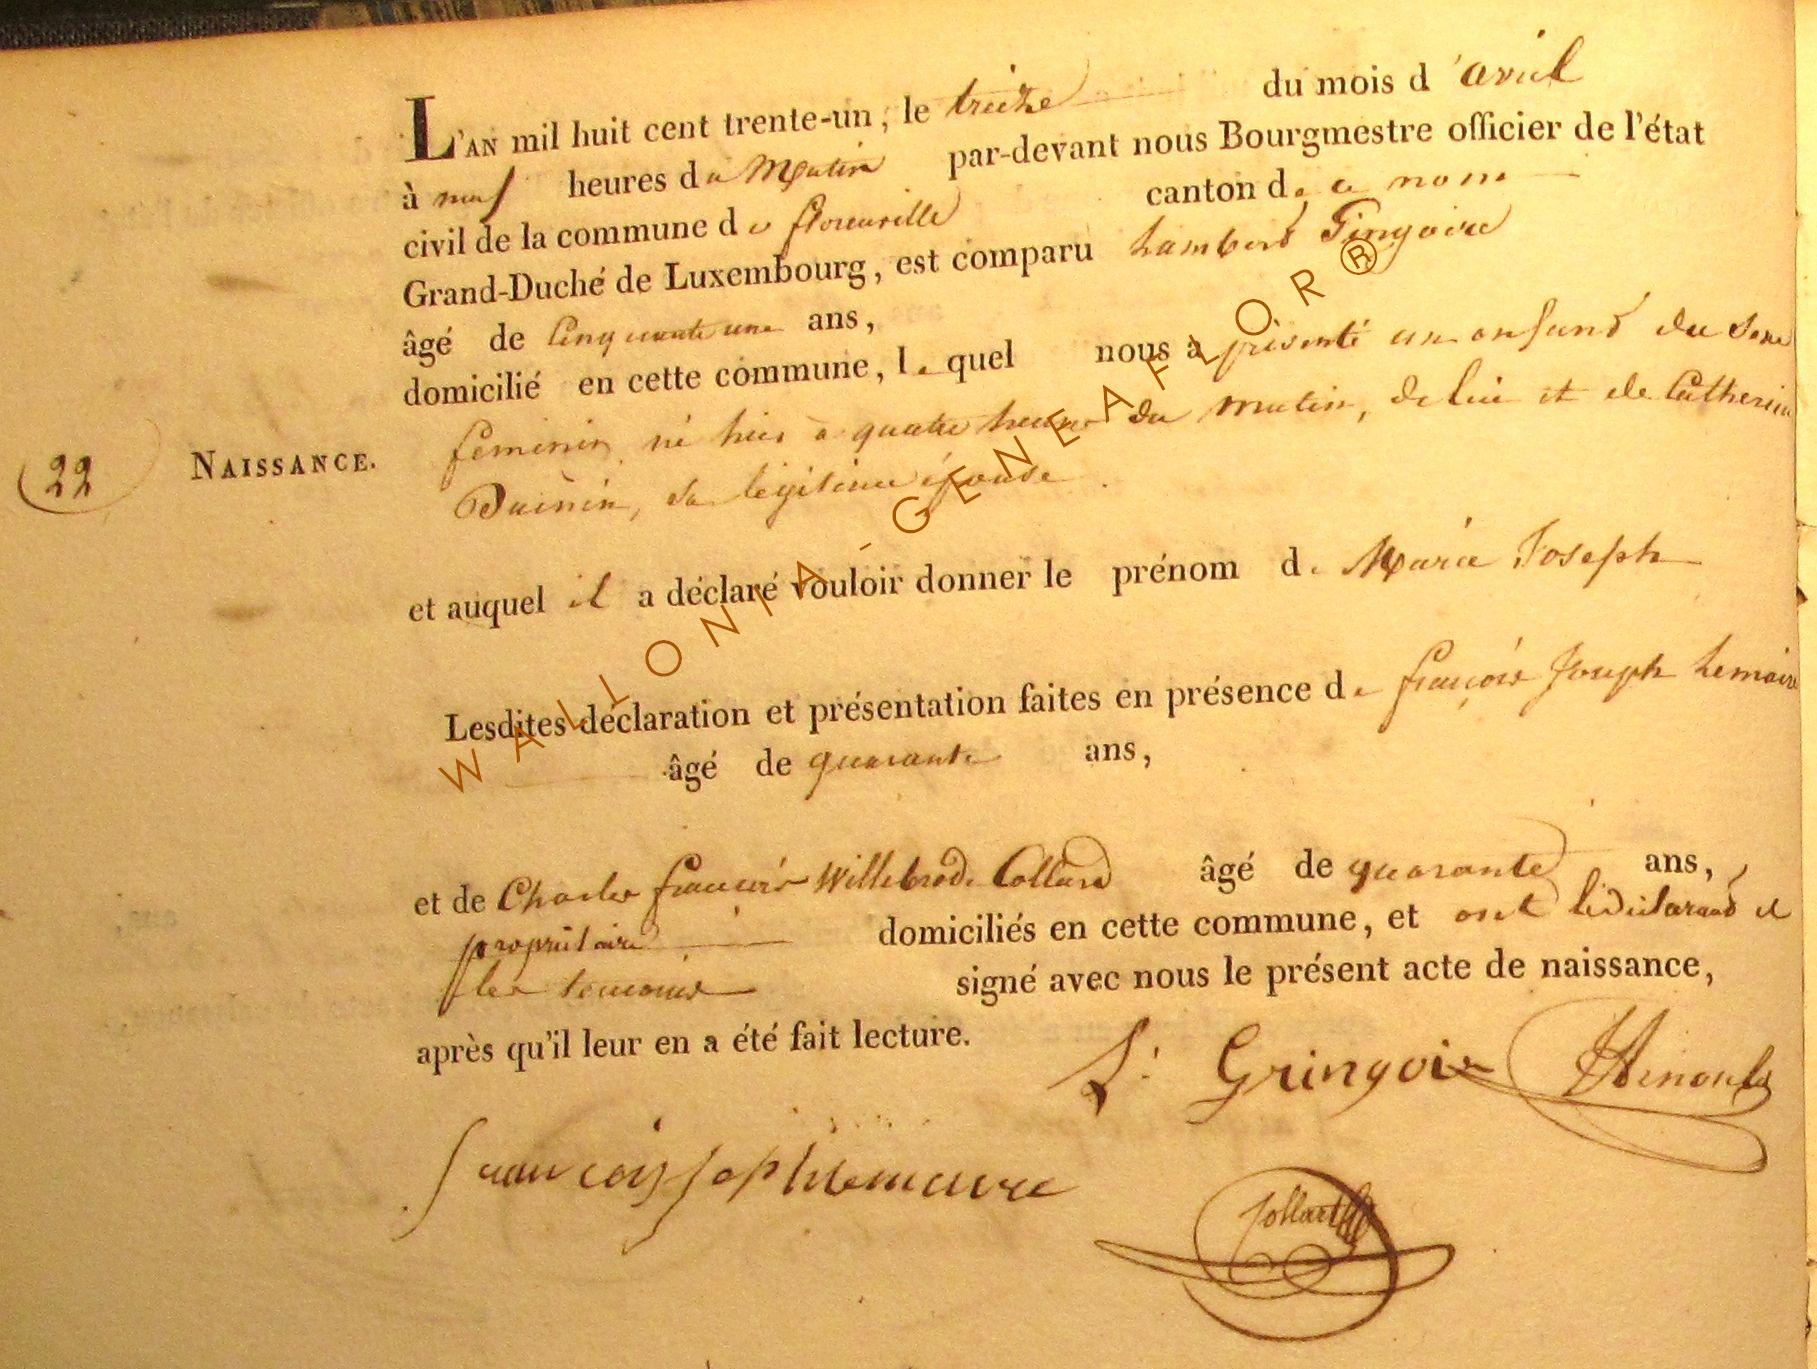 L'AN mil huit cent trente-un, le treize du mois d'avril
à neuf heures du Matin par-devant nous Bourgmestre officier de l'état
civil de la commune de florenville canton de ce nom
Grand-Duché de Luxembourg, est comparu Lambert Gingoire
âgé de Cinquante une ans,
domicilié en cette commune, lequel nous a présenté un enfant du sexe
22 NAISSANCE. feminin né hier à quatre heures du matin, de lui et de Catherine
sa légitime épouse
et auquel il a déclaré vouloir donner le prénom de Marie Joseph
Lesdites déclaration et présentation faites en présence de françois Joseph Lemaire
âgé de quarante ans,
et de Charles françois Willebrod Collard âgé de quarante ans,
propriétaire domiciliés en cette commune, et ont le déclarant et
les temoins signé avec nous le présent acte de naissance,
après qu'il leur en a été fait lecture.
L. Gringoire
WALLONIA-GENEAFLOR®